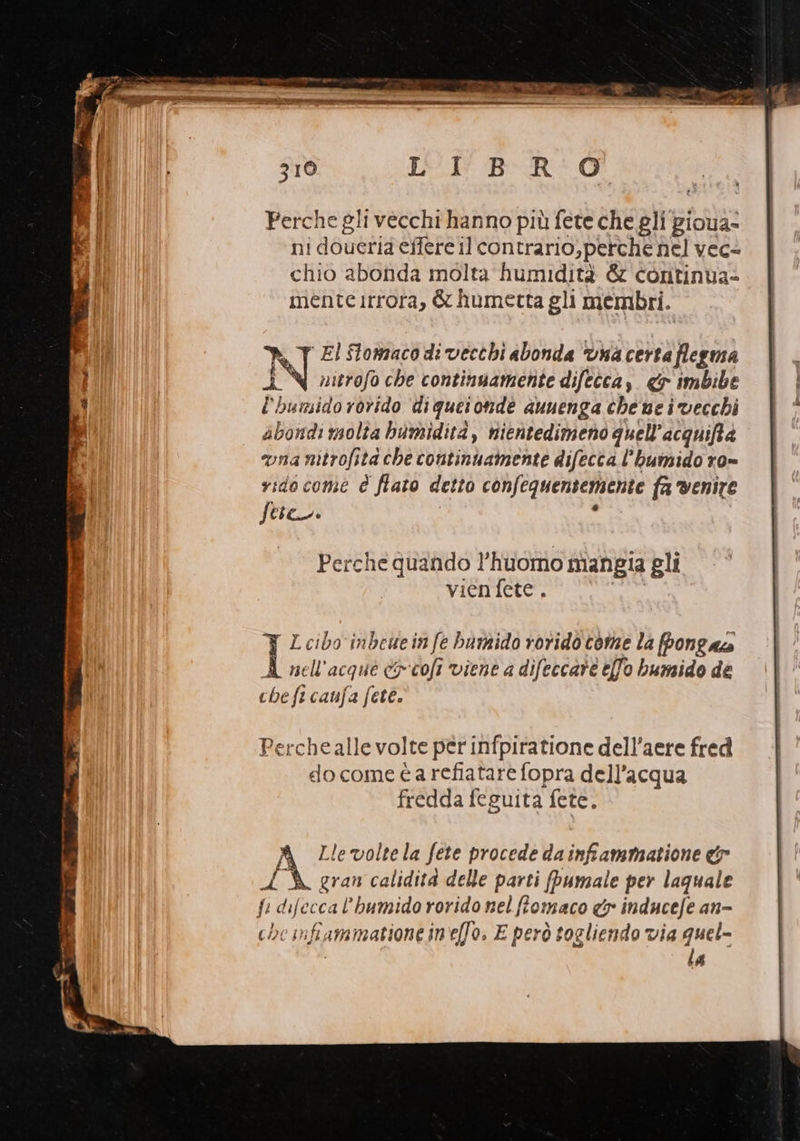 310 LIBRO
Perche gli vecchi hanno più ſete che gli gioua-
ni doueria eſſere il contrario, perche nel vec-
chio abonda molta humidità & continua-
mente irrora, & humetta gli membri.
NEl ſtomaco di vecchi abonda vna certa flegma
nitroſa che continuamente diſecca, & imbibe
l'humido rorido di quei onde auuenga che ne i vecchi
abondi molta humidità, nientedimeno quell'acquiſta
vna nitroſità che continuamente diſecca l'humido ro-
rido come è ſtato detto conſequentemente fa venire
ſete.
Perche quando l'huomo mangia gli
vien ſete.
IL cibo inbeue in ſe humido rorido come la ſponga
nell'acque & coſi viene a diſeccare eſſo humido de
che ſi cauſa ſete.
Perche alle volte per inſpiratione dell'aere fred
do come è a refiatare ſopra dell'acqua
fredda ſeguita ſete.
ALle volte la ſete procede da infiammatione &
gran calidità delle parti ſpumale per laquale
ſi diſecca l'humido rorido nel ſtomaco & induceſe an-
che infiammatione in eſſo. E però togliendo via quel-
la